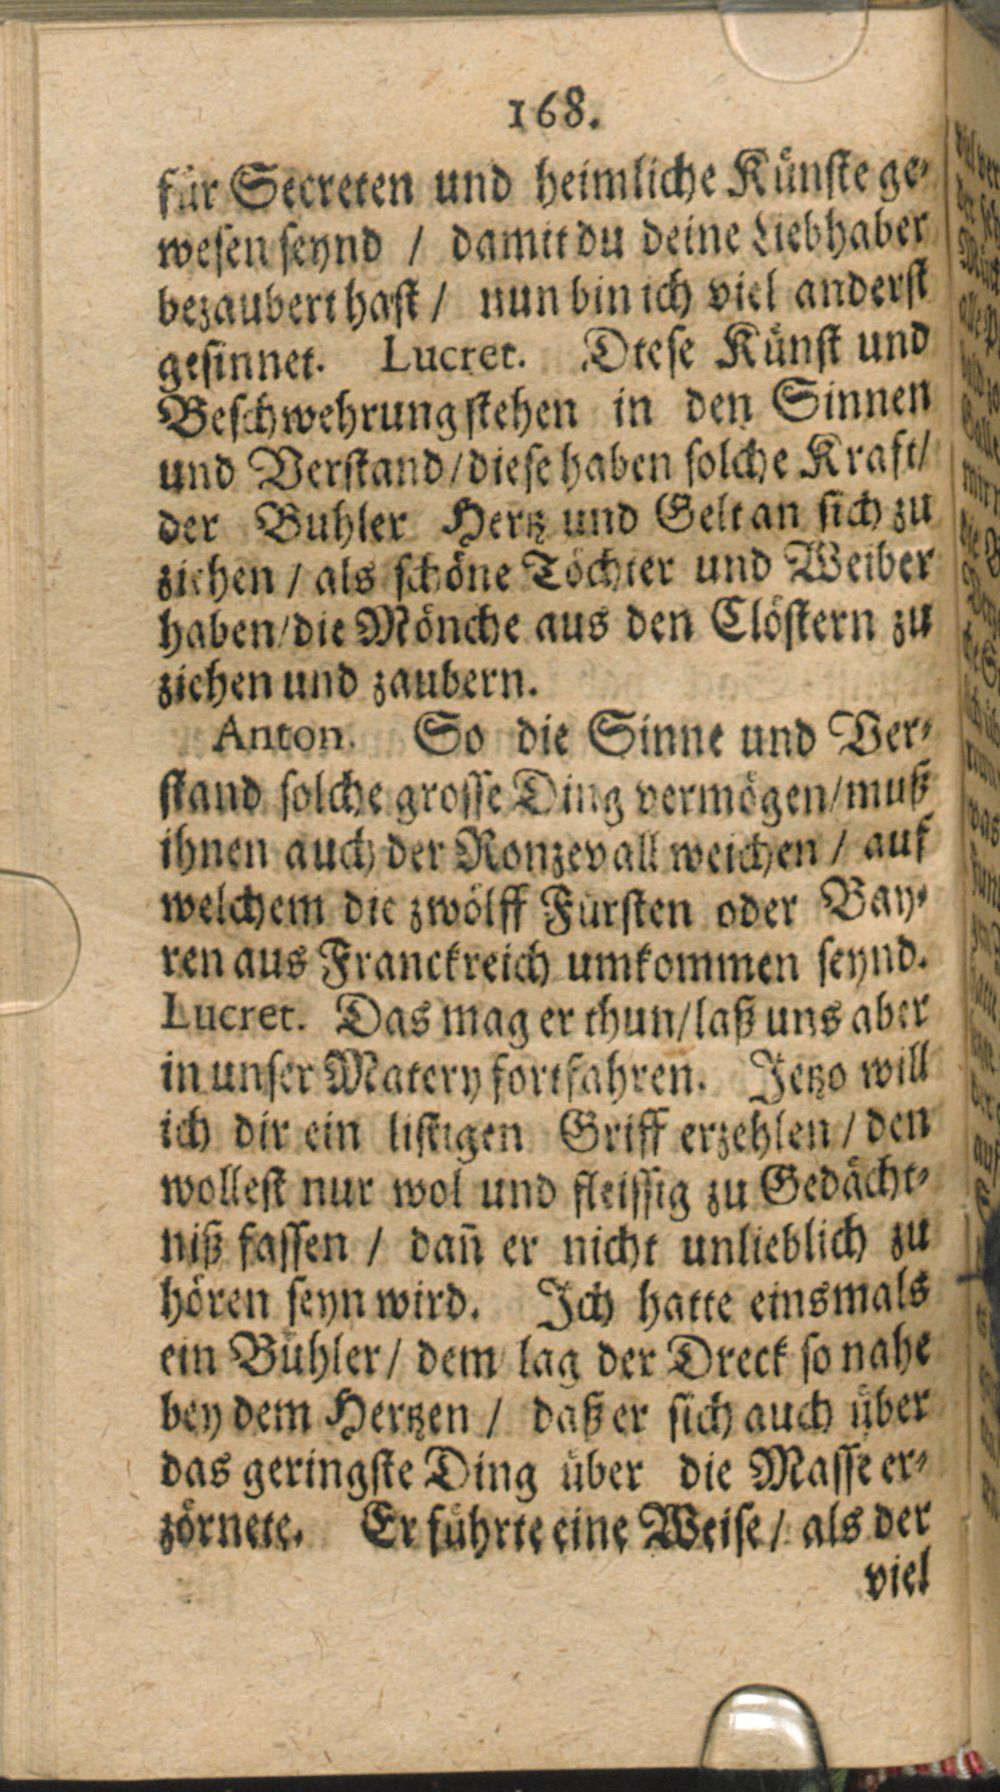 168.
für Secreten und heimliche Künste ge-
wesen seynd / damit du deine Liebhaber
bezaubert hast / nun bin ich viel anderst
gesinnet. Lucret. Diese Künst und
Beschwehrung stehen in den Sinnen
und Verstand / diese haben solche Kraft /
der Buhler Hertz und Gelt an sich zu
ziehen / als schöne Töchter und Weiber
haben / die Mönche aus den Clöstern zu
ziehen und zaubern.
Anton. So die Sinne und Ver-
stand solche grosse Ding vermögen / muß
ihnen auch der Ronzevall weichen / auf
welchem die zwölff Fürsten oder Bay-
ren aus Franckreich umkommen seynd.
Lucret. Das mag er thun / laß uns aber
in unser Matery fortfahren. Jetzo will
ich dir ein listigen Griff erzehlen / den
wollest nur wol und fleissig zu Gedächt-
niß fassen / dañ er nicht unlieblich zu
hören seyn wird. Ich hatte einsmals
ein Bühler / dem lag der Dreck so nahe
bey dem Hertzen / daß er sich auch über
das geringste Ding über die Masse er-
zörnete. Er führte eine Weise / als der
viel